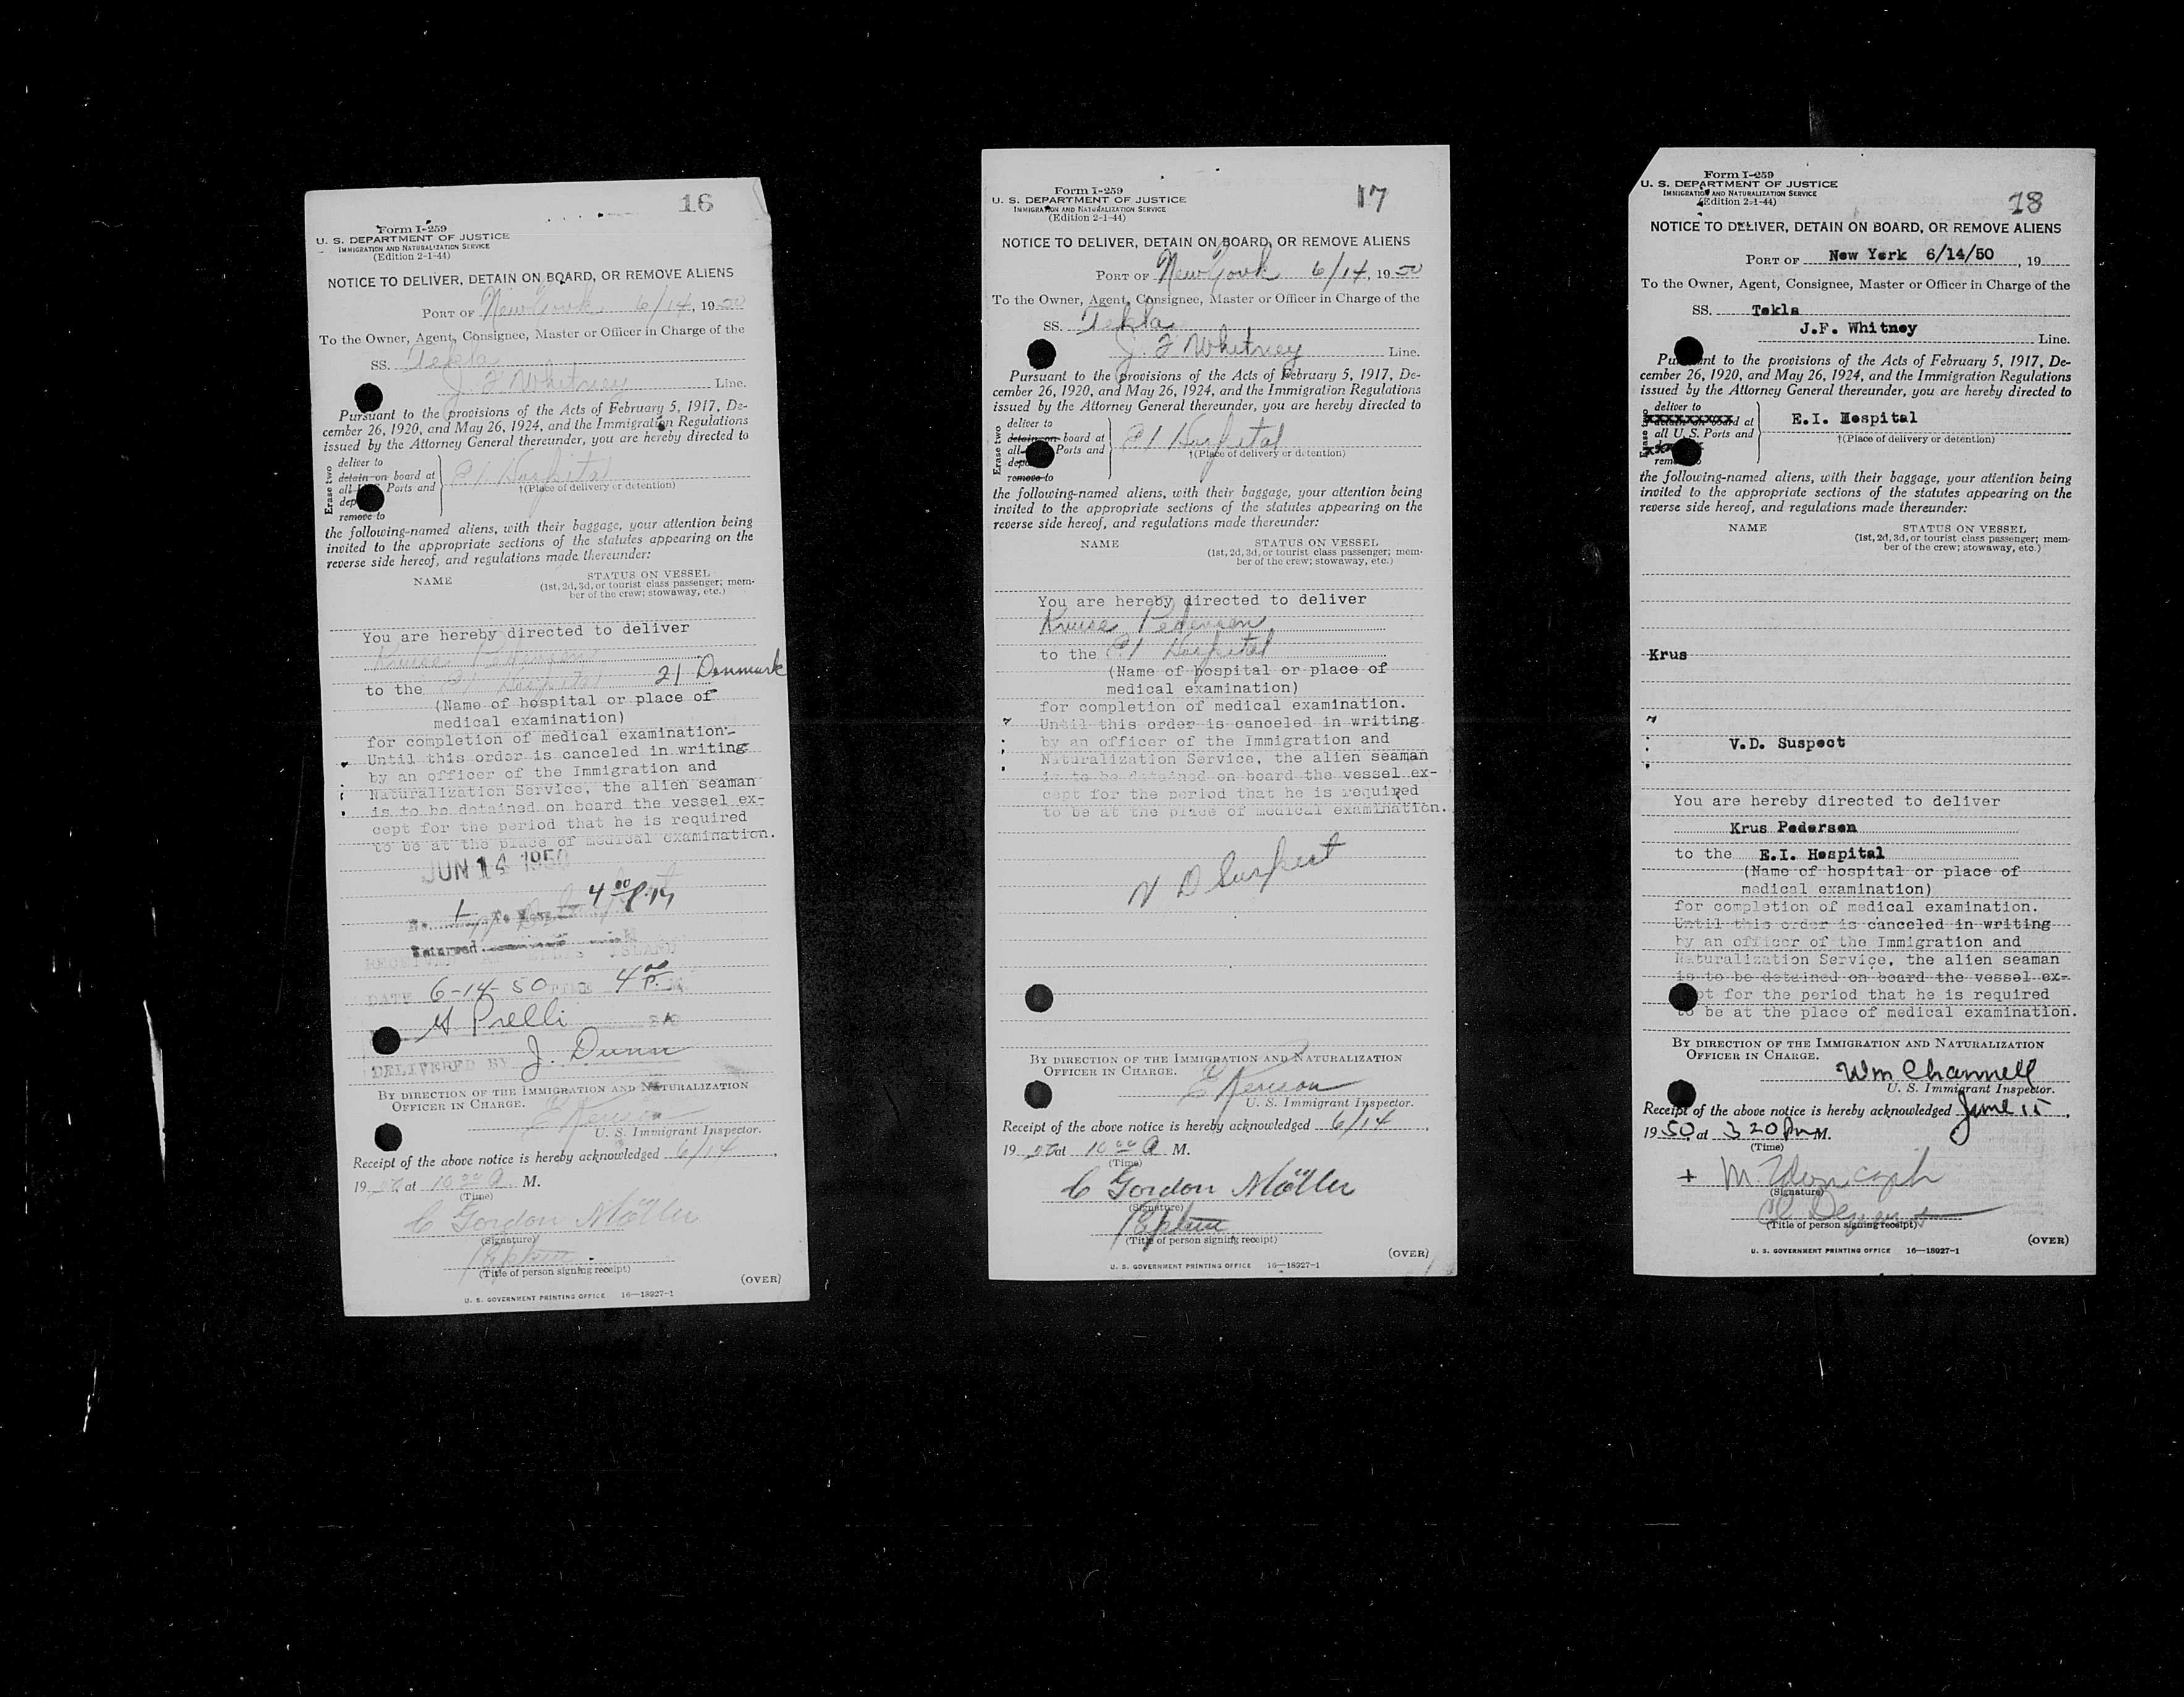 16
Form I-259
U. S. DEPARTMENT OF JUSTICE
IMMIGRATION AND NATURALIZATION SERVICE
(Edition 2-1-44)
NOTICE TO DELIVER, DETAIN ON BOARD, OR REMOVE ALIENS
PORT OF New York 6/14, 1950
To the Owner, Agent, Consignee, Master or Officer in Charge of the
SS. Tekla
J. F Whitney Line.
Pursuant to the provisions of the Acts of February 5, 1917, De-
cember 26, 1920, and May 26, 1924, and the Immigration Regulations
issued by the Attorney General thereunder, you are hereby directed to
Erase two
deliver to
detain on board at
all Ports and
remove to
E I Hospital
†(Place of delivery or detention)
the following-named aliens, with their baggage, your attention being
invited to the appropriate sections of the statutes appearing on the
reverse side hereof, and regulations made thereunder:
NAME STATUS ON VESSEL
(1st, 2d, 3d, or tourist class passenger; mem-
ber of the crew; stowaway, etc.)
You are hereby directed to deliver
Kruse Pedersen
to the E I Hospital 21 Denmark
(Name of hospital or place of
medical examination)
for completion of medical examination.
Until this order is canceled in writing
by an officer of the Immigration and
Naturalization Service, the alien seaman
is to be detained on board the vessel ex-
cept for the period that he is required
to be at the place of medical examination.
JUN 14 1950
No. 1 To Hosp. 4 00 P.M
Returned
ELLIS ISLAND
DATE 6-14-50 TIME 4 00 P. M.
Prelli
DELIVERED BY J. Dunn
BY DIRECTION OF THE IMMIGRATION AND NATURALIZATION
OFFICER IN CHARGE.
U. S. Immigrant Inspector.
Receipt of the above notice is hereby acknowledged 6/14,
19 at 10 00 A M.
(Time)
C Gordon Möller
(Signature)
(Title of person signing receipt)
(OVER)
U. S. GOVERNMENT PRINTING OFFICE 16—18927-1
17
Form I-259
U. S. DEPARTMENT OF JUSTICE
IMMIGRATION AND NATURALIZATION SERVICE
(Edition 2-1-44)
NOTICE TO DELIVER, DETAIN ON BOARD, OR REMOVE ALIENS
PORT OF New York 6/14, 1950
To the Owner, Agent, Consignee, Master or Officer in Charge of the
SS. Tekla
J. F Whitney Line.
Pursuant to the provisions of the Acts of February 5, 1917, De-
cember 26, 1920, and May 26, 1924, and the Immigration Regulations
issued by the Attorney General thereunder, you are hereby directed to
Erase two
deliver to
detain on board at
all Ports and
remove to
E I Hospital
†(Place of delivery or detention)
the following-named aliens, with their baggage, your attention being
invited to the appropriate sections of the statutes appearing on the
reverse side hereof, and regulations made thereunder:
NAME STATUS ON VESSEL
(1st, 2d, 3d, or tourist class passenger; mem-
ber of the crew; stowaway, etc.)
You are hereby directed to deliver
Kruse Pedersen
to the E I Hospital
(Name of hospital or place of
medical examination)
for completion of medical examination.
Until this order is canceled in writing
by an officer of the Immigration and
Naturalization Service, the alien seaman
is to be detained on board the vessel ex-
cept for the period that he is required
to be at the place of medical examination.
V D Suspect
BY DIRECTION OF THE IMMIGRATION AND NATURALIZATION
OFFICER IN CHARGE.
U. S. Immigrant Inspector.
Receipt of the above notice is hereby acknowledged 6/14,
19 at 10 00 A M.
(Time)
C Gordon Möller
(Signature)
(Title of person signing receipt)
(OVER)
U. S. GOVERNMENT PRINTING OFFICE 16—18927-1
18
Form I-259
U. S. DEPARTMENT OF JUSTICE
IMMIGRATION AND NATURALIZATION SERVICE
(Edition 2-1-44)
NOTICE TO DELIVER, DETAIN ON BOARD, OR REMOVE ALIENS
PORT OF New York 6/14/50, 19
To the Owner, Agent, Consignee, Master or Officer in Charge of the
SS. Tekla
J.F. Whitney Line.
Pursuant to the provisions of the Acts of February 5, 1917, De-
cember 26, 1920, and May 26, 1924, and the Immigration Regulations
issued by the Attorney General thereunder, you are hereby directed to
Erase two
deliver to
detain on board at
all U. S. Ports and
E.I. Hospital
†(Place of delivery or detention)
the following-named aliens, with their baggage, your attention being
invited to the appropriate sections of the statutes appearing on the
reverse side hereof, and regulations made thereunder:
NAME STATUS ON VESSEL
(1st, 2d, 3d, or tourist class passenger; mem-
ber of the crew; stowaway, etc.)
Krus
V.D. Suspect
You are hereby directed to deliver
Krus Pedersen
to the E.I. Hospital
(Name of hospital or place of
medical examination)
for completion of medical examination.
Until this order is canceled in writing
by an officer of the Immigration and
Naturalization Service, the alien seaman
is to be detained on board the vessel ex-
cept for the period that he is required
to be at the place of medical examination.
BY DIRECTION OF THE IMMIGRATION AND NATURALIZATION
OFFICER IN CHARGE.
Wm Channell
U. S. Immigrant Inspector.
Receipt of the above notice is hereby acknowledged June 15,
1950, at 3 20 pm M.
(Time)
(Signature)
(Title of person signing receipt)
(OVER)
U. S. GOVERNMENT PRINTING OFFICE 16—18927-1